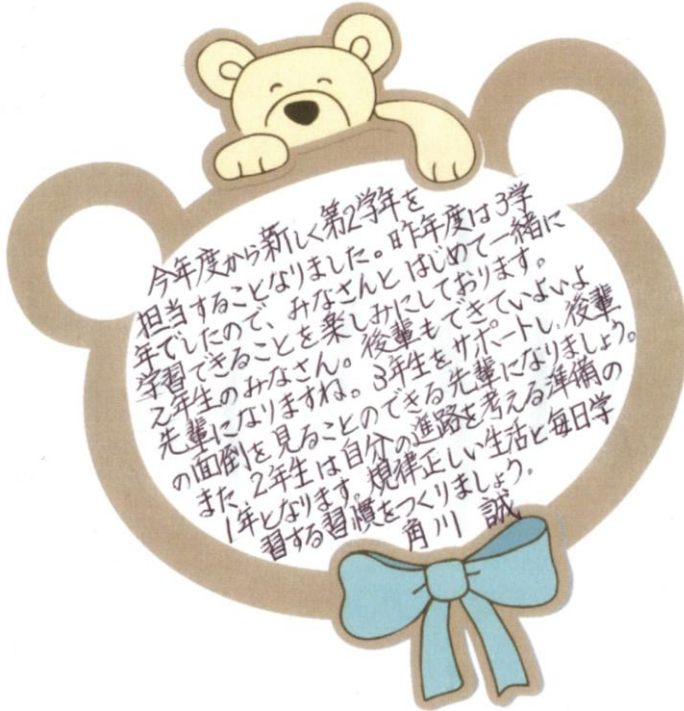 今年度から新しく第2学年を
担当することなりました。昨年度は3学
年でしたので、みなさんとはじめて一緒に
学習できることを楽しみにしております。
2年生のみなさん。後輩もできていよいよ
先輩になりますね。3年生をサポートし、後輩
の面倒を見ることのできる先輩になりましょう。
また、2年生は自分の進路を考える準備の
1年となります。規律正しい生活と毎日学
習する習慣をつくりましょう。
角川 誠